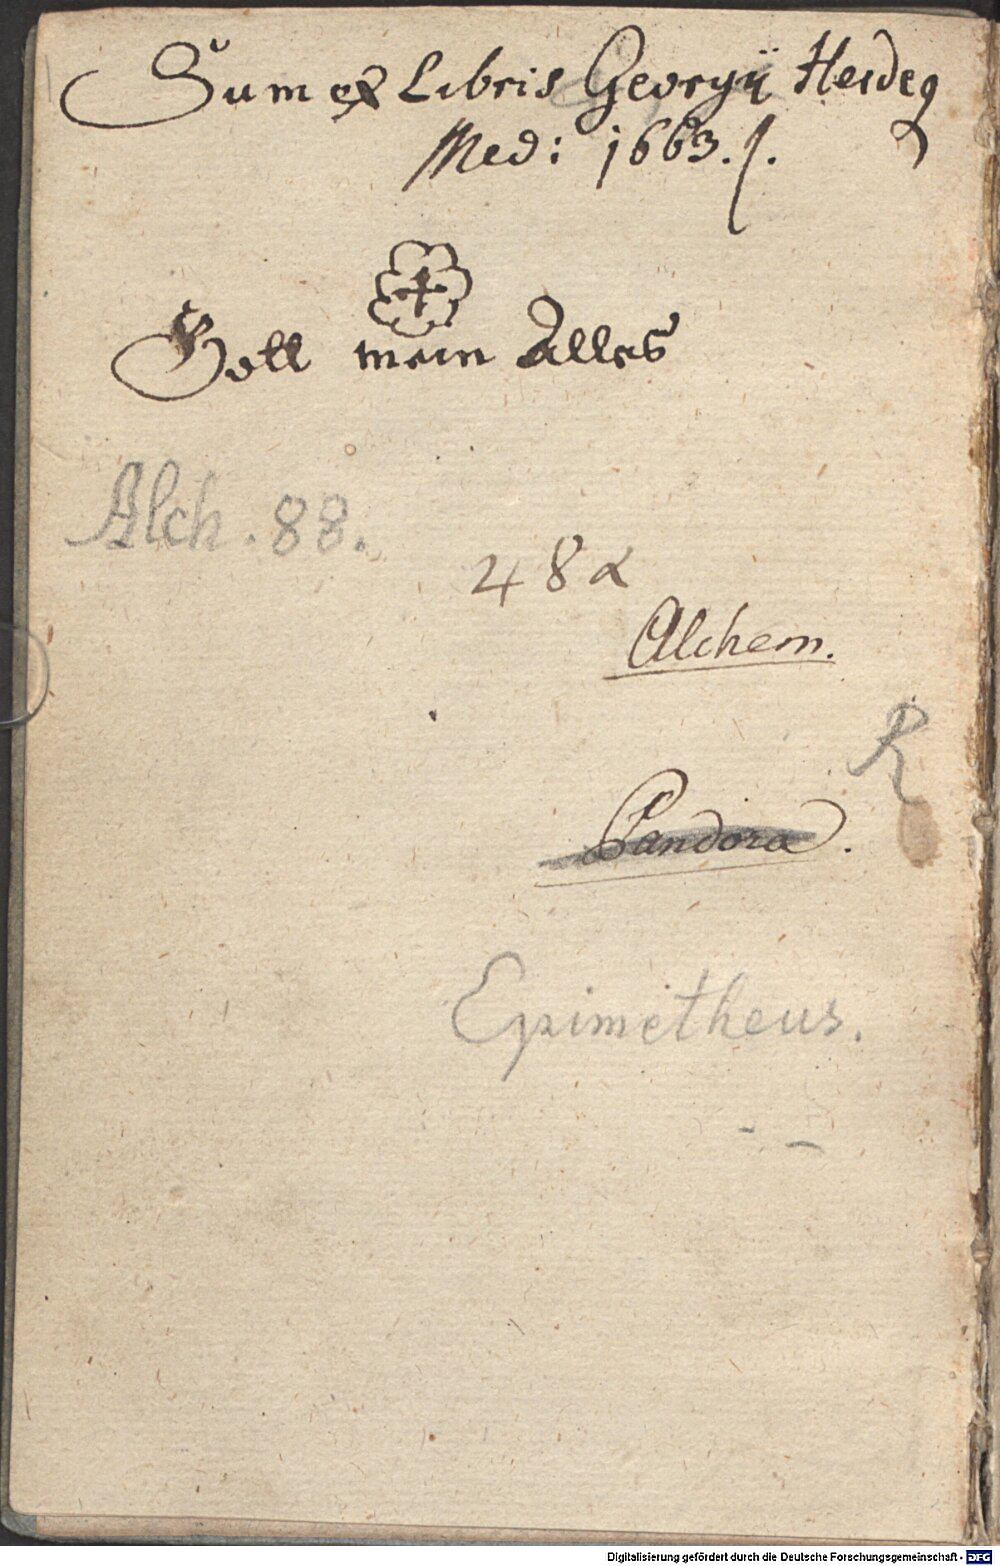 Sum ex Libris Georgÿ Heideg
Med: 1663. f.
Gott mein Alles
Alch. 88.
48α
Alchem.
R
Pandora.
Epimetheus.
Digitalisierung gefördert durch die Deutsche Forschungsgemeinschaft - DFG